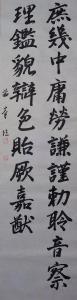 庶幾中庸勞謙謹勅聆音察
理鑑貌辯色貽厥嘉猷